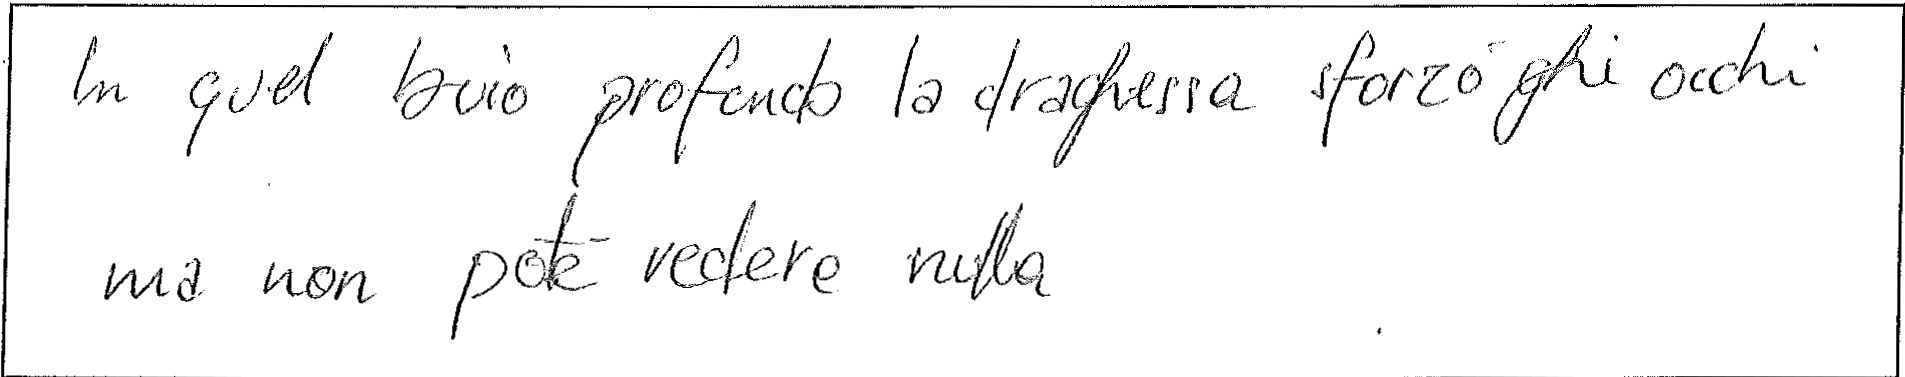 In quel buio profondo la draghessa sforzò ghi occhi
ma non potè vedere nulla